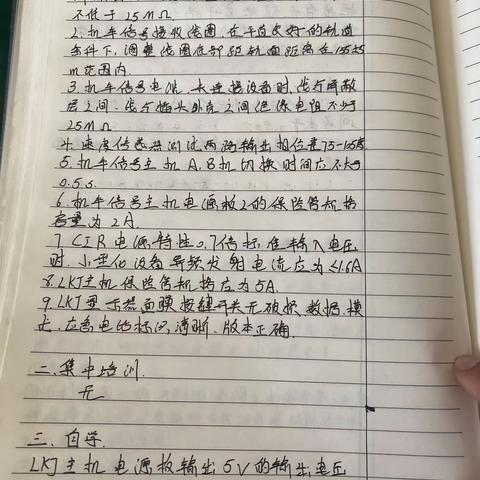 不低于25MΩ
2.机车信号接收线圈,在平直良好的轨道
条件下,调整线圈底部距轨面距离在155±5
m范围内.
3.机车信号电缆,未连接设备时,线芯屏蔽
层之间,线芯插头外壳之间绝缘电阻不少于
25MΩ
4.速度传感器测试,两路输出相位是75-105度
5.机车信号主机A.B机切换时间应不大于
0.5s.
6.机车信号主机电源板2的保险管熔丝
容量为2A.
7.CIR电源特性0.7倍标准输入电压
时.小型化设备异频发射电流应为≤1.6A
8.LKJ主机保险管熔丝应为5A.
9.LKJ显示器面膜按键开关无破损,数据.模
式.应急电话标识清晰.版本正确.
二.集中培训.
无
三.自学.
LKJ主机电源板输出5V的输出电压